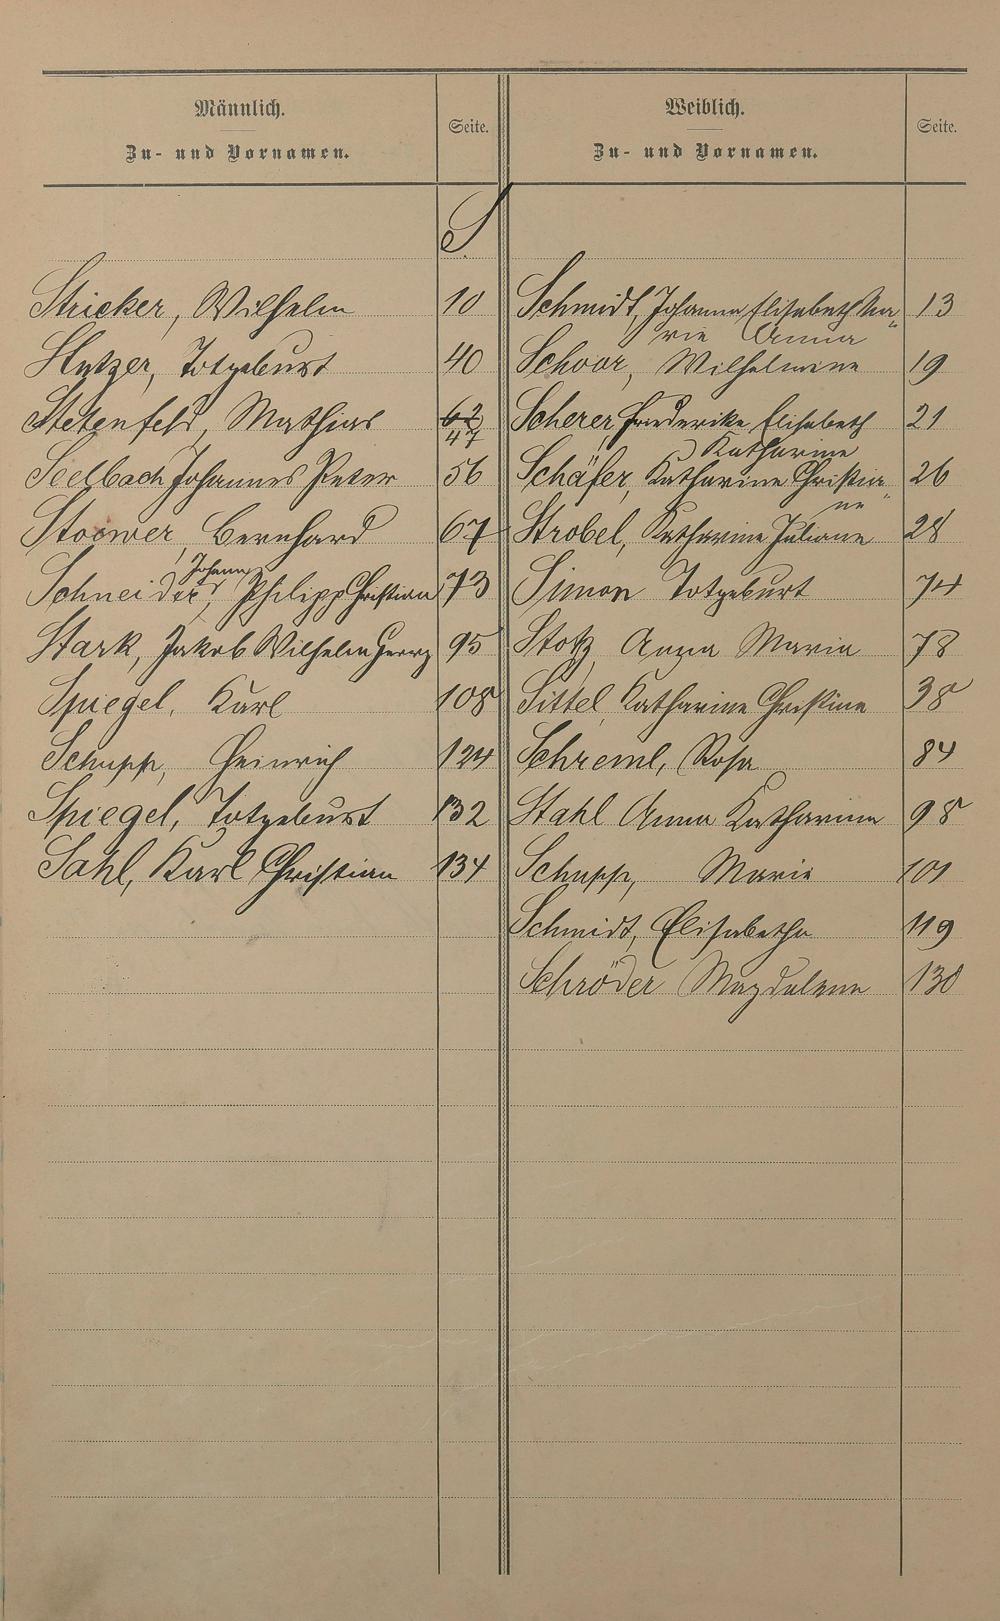 Männlich.
Zu- und Vornamen.
Seite.
Weiblich.
Zu- und Vornamen.
Seite.
S.
Stricker, Wilhelm 10
Stutzer, Totgeburt 40
Stetenfeld, Mathias 62
47
Seelbach Johannes Peter 56
Stoewer, Bernhard 67
Johann
Schneider, Philipp Christian 73
Stark, Jakob Wilhelm Georg 95
Spiegel, Karl 108
Schupp, Heinrich 124
Spiegel, Totgeburt 132
Sahl, Karl Christian 134
Schmidt, Johanna Elisabeth Ma- 13
rie Anna
Schoor, Wilhelmine 19
Scherer, Friederike Elisabeth 21
Katharine
Schäfer, Katharine Christia- 26
ne
Strobel, Katharine Juliane 28
Simon Totgeburt 74
Stotz, Anna Maria 78
Sittel, Katharine Christine 38
Schreml, Rosa 84
Stahl Anna Katharina 98
Schupp, Marie 101
Schmidt, Elisabetha 119
Schröder Magdalena 130